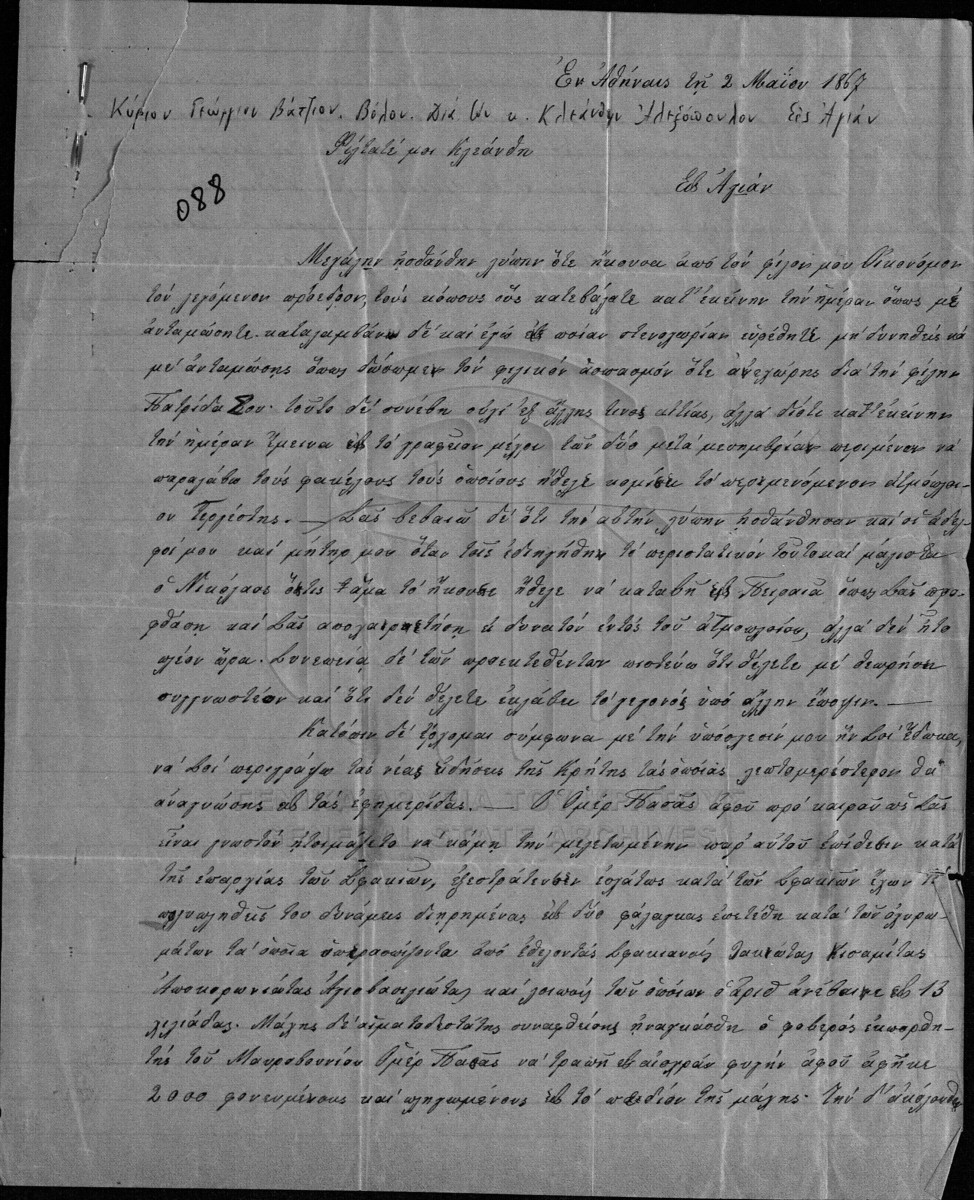 Ἐν Ἀθήναις τῇ 2 Μαΐου 1867
Κύριον Γεώργιον Βάτζιον. Βόλον. Διὰ τὸν κ. Κλεάνθην Ἀλεξόπουλον Εἰς Ἁγιάν
Φίλτατέ μοι Κλεάνθη
Εἰς Ἁγιάν
088
Μεγάλην ᾐσθάνθην λύπην ὅτε ἤκουσα ἀπὸ τὸν φίλον μου Οἰκονόμον
τὸν λεγόμενον πρόεδρον, τοὺς κόπους οὓς κατεβάλατε κατ' ἐκείνην τὴν ἡμέραν ὅπως μὲ
ἀνταμώσητε. καταλαμβάνω δὲ καὶ ἐγὼ εἰς ποίαν στενοχωρίαν εὑρέθητε μὴ δυνηθεὶς νὰ
μὲ ἀνταμώσῃς ὅπως δώσωμεν τὸν φιλικὸν ἀσπασμὸν ὅτε ἀνεχώρης διὰ τὴν φίλην
Πατρίδα Σου. τοῦτο δὲ συνέβη οὐχὶ ἐξ ἄλλης τινος αἰτίας, ἀλλὰ διότι κατ' ἐκείνην
τὴν ἡμέραν ἔμεινα εἰς τὸ γραφεῖον μέχρι τῶν δύο μετὰ μεσημβρίαν περιμένων νὰ
παραλάβω τοὺς φακέλους τοὺς ὁποίους ἤθελε κομίσει τὸ περιμενόμενον ἀτμόπλοι-
ον Τεργέστης. — Σᾶς βεβαιῶ δὲ ὅτι τὴν αὐτὴν λύπην ᾐσθάνθησαν καὶ οἱ ἀδελ-
φοί μου καὶ μήτηρ μου ὅταν τοῖς ἐδιηγήθην τὸ περιστατικὸν τοῦτο καὶ μάλιστα
ὁ Νικόλαος ὅστις ἅμα τὸ ἤκουσε ἤθελε νὰ καταβῇ εἰς Πειραιᾶ ὅπως Σᾶς προ-
φθάσῃ καὶ Σᾶς αποχαιρετήσῃ εἰ δυνατὸν ἐντὸς τοῦ ἀτμοπλοίου, ἀλλὰ δὲν ἦτο
πλέον ὥρα. Συνεπείᾳ δὲ τῶν προεκτεθέντων πιστεύω ὅτι θέλετε μὲ θεωρήσει
συγγνωστέον καὶ ὅτι δὲν θέλετε ἐκλάβει τὸ γεγονὸς ὑπὸ ἄλλην ἔποψιν. —
Κατόπιν δὲ ἔρχομαι σύμφωνα μὲ τὴν ὑπόσχεσίν μου ἣν Σοὶ ἔδωκα,
νὰ Σοὶ περιγράψω τὰς νέας εἰδήσεις τῆς Κρήτης τὰς ὁποίας λεπτομερέστερον θὰ
ἀναγνώσῃς εἰς τὰς ἐφημερίδας. — Ὁ Ὀμὲρ Πασᾶς ἀφοῦ πρὸ καιροῦ ὡς Σᾶς
εἶναι γνωστὸν ἡτοιμάζετο νὰ κάμῃ τὴν μελετωμένην παρ' αὐτοῦ ἐπίθεσιν κατὰ
τῆς ἐπαρχίας τῶν Σφακιῶν, ἐξεστράτευσεν ἐσχάτως κατὰ τῶν Σφακιῶν ἔχων
πολυπληθεῖς του δυνάμεις διῃρημένας εἰς δύο φάλαγκας ἐπετέθη κατὰ τῶν ὀχυρω-
μάτων τὰ ὁποῖα ὑπερασπίζοντο ἀπὸ ἐθελοντὰς Σφακιανοὺς Λακιώτας Κισαμίτας
Ἀποκορωνιώτας Ἁγιοβασιλιώτας καὶ λοιποὺς τῶν ὁποίων ὁ ἀριθ ἀνέβαινε εἰς 13
χιλιάδας. Μάχης δὲ αἱματοδεστάτης συναφθείσης ἠναγκάσθη ὁ φοβερὸς ἐκπορθη-
τὴς τοῦ Μαυροβουνίου Ὀμὲρ Πασᾶς νὰ τραπῇ εἰς αἰσχρὰν φυγὴν ἀφοῦ ἀφῆκε
2000 φονευμένους καὶ πληγωμένους εἰς τὸ πεδίον τῆς μάχης. τὴν δ' ἀκόλουθον